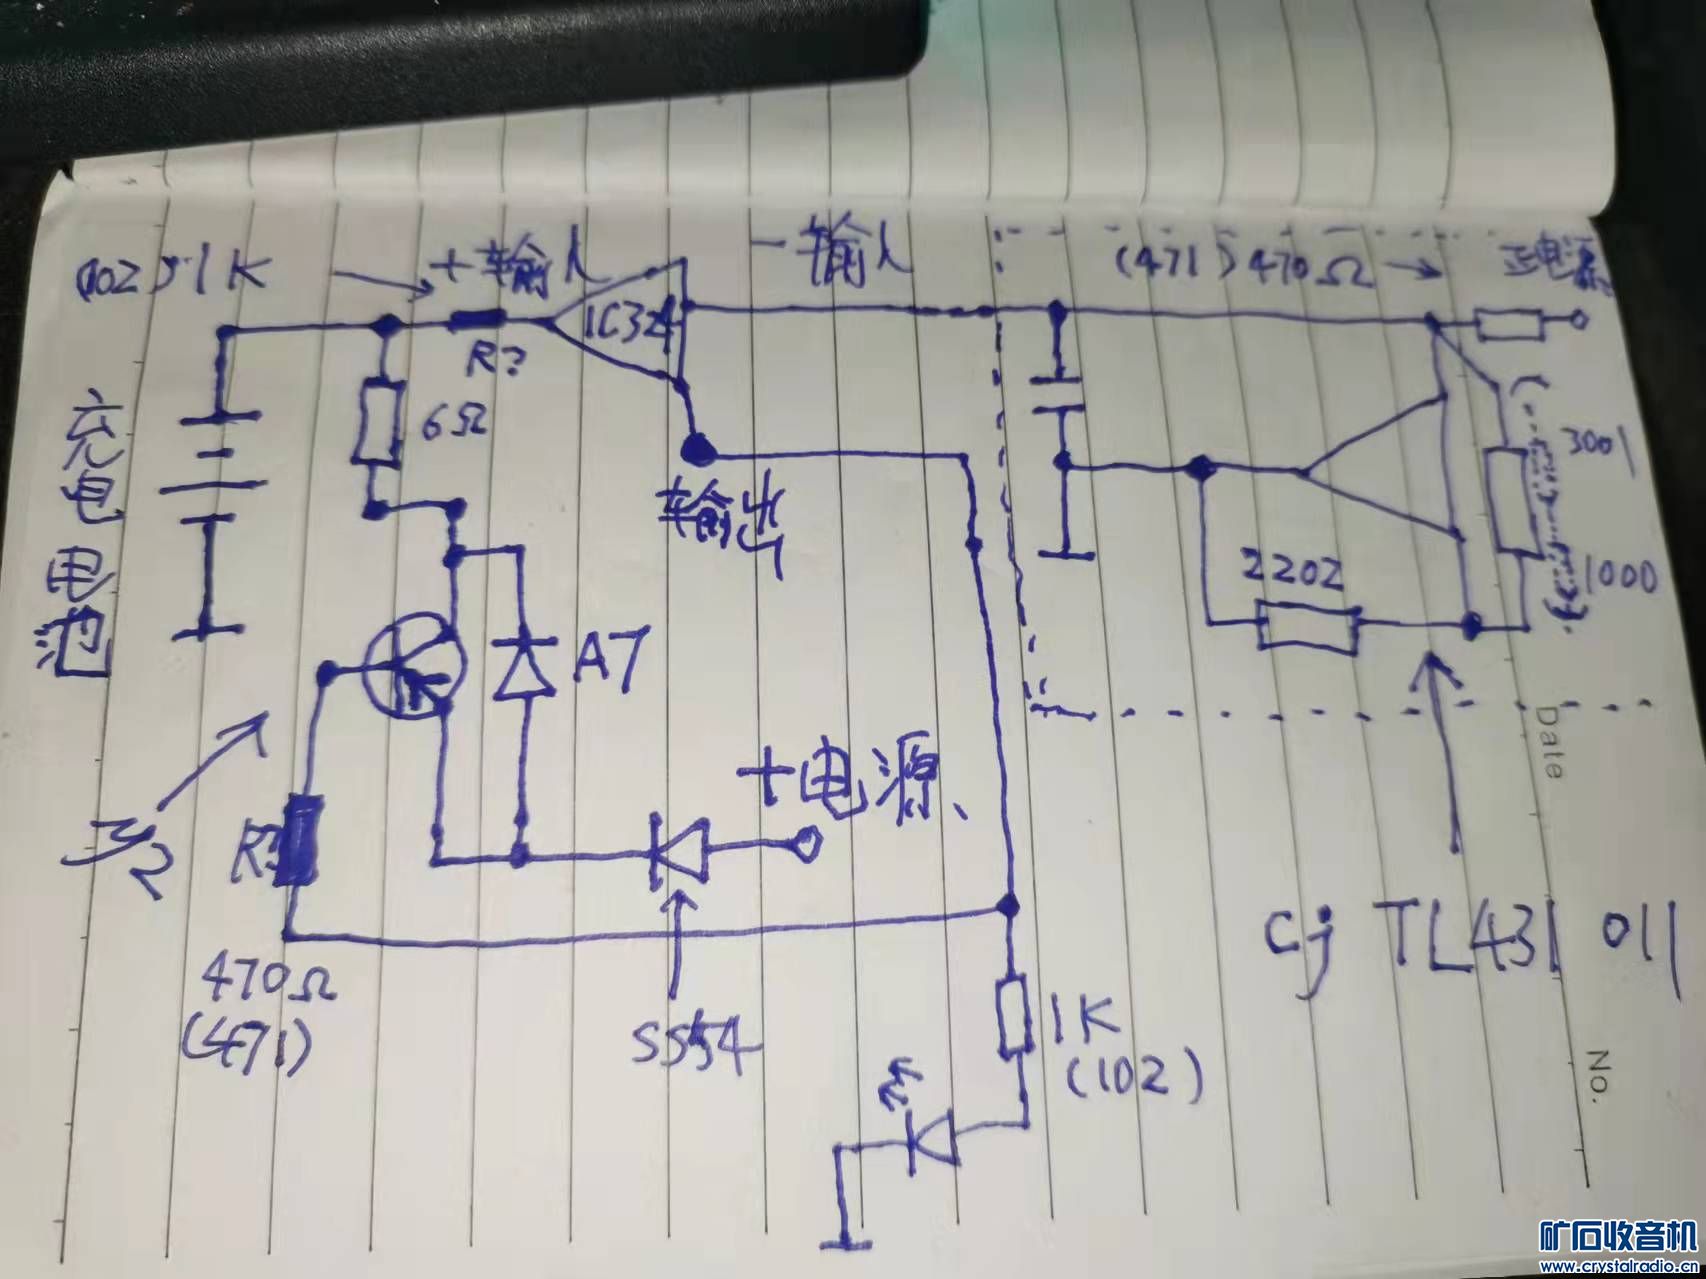 (102)1K
+输入
-输入
(471)470Ω
正电源
IC324
R?
6Ω
充电电池
输出
3001
1000
2202
A7
+电源
R?
Y2
470Ω
(471)
SS54
1K
(102)
cj TL431 011
Date
No.
矿石收音机
www.crystalradio.cn